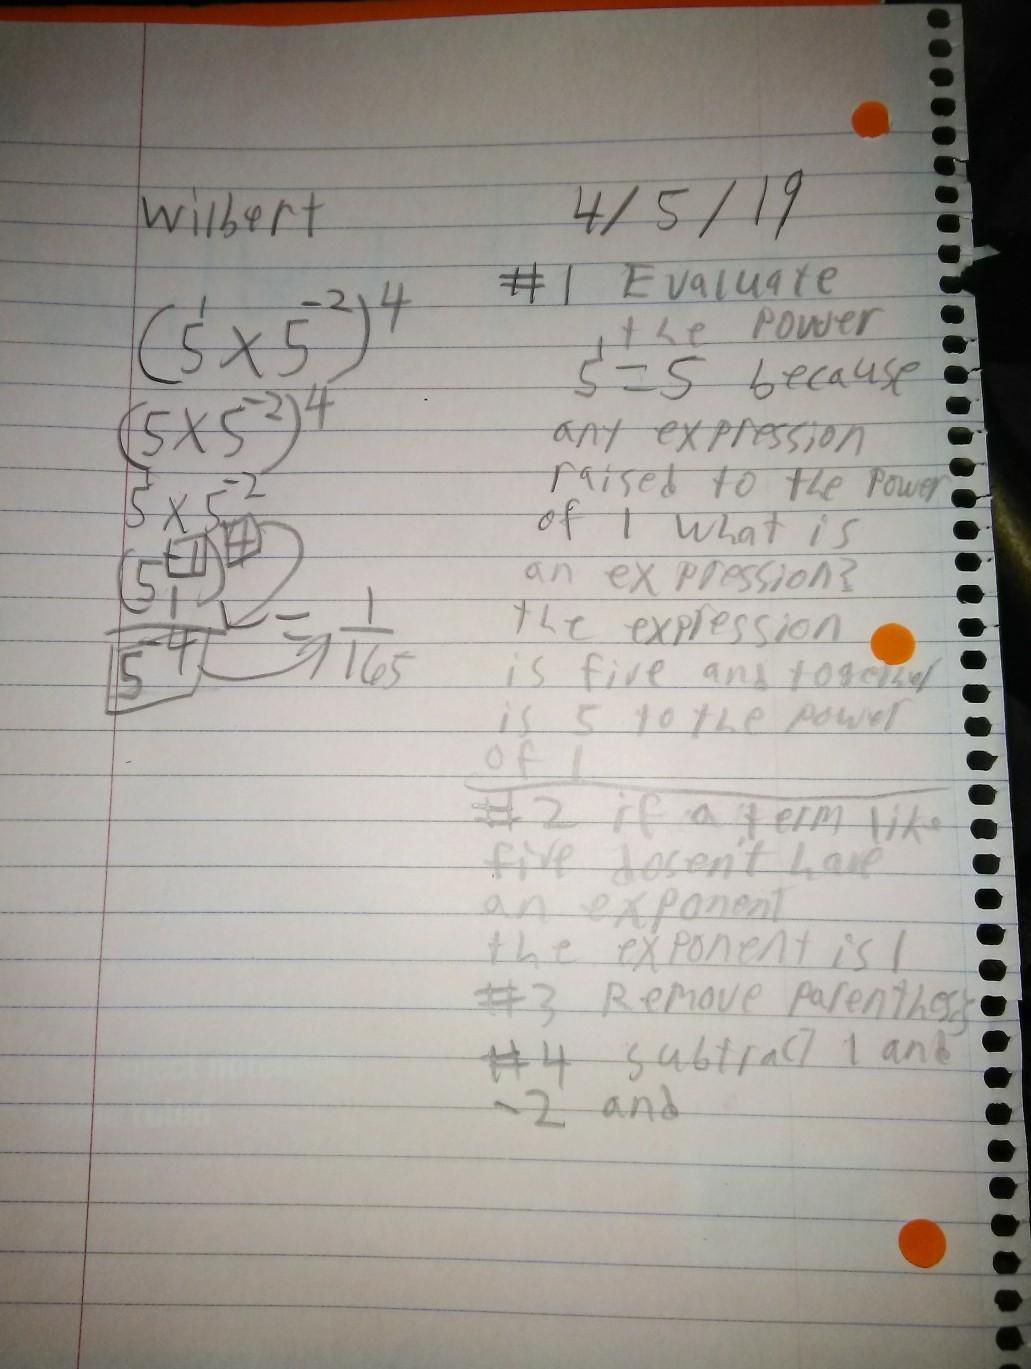 Wilbert 4/5/19
(5¹ x 5⁻²)⁴
(5 x 5⁻²)⁴
5¹ x 5⁻²
(5⁻¹)⁴
1 / 5⁻⁴ = 1 / 165
#1 Evaluate
the power
5¹ = 5 because
any expression
raised to the power
of 1 what is
an expression?
the expression
is five and together
is 5 to the power
of 1
#2 if a term like
five dosen't have
an exponent
the exponent is 1
#3 Remove parenthesis
#4 subtract 1 and
-2 and